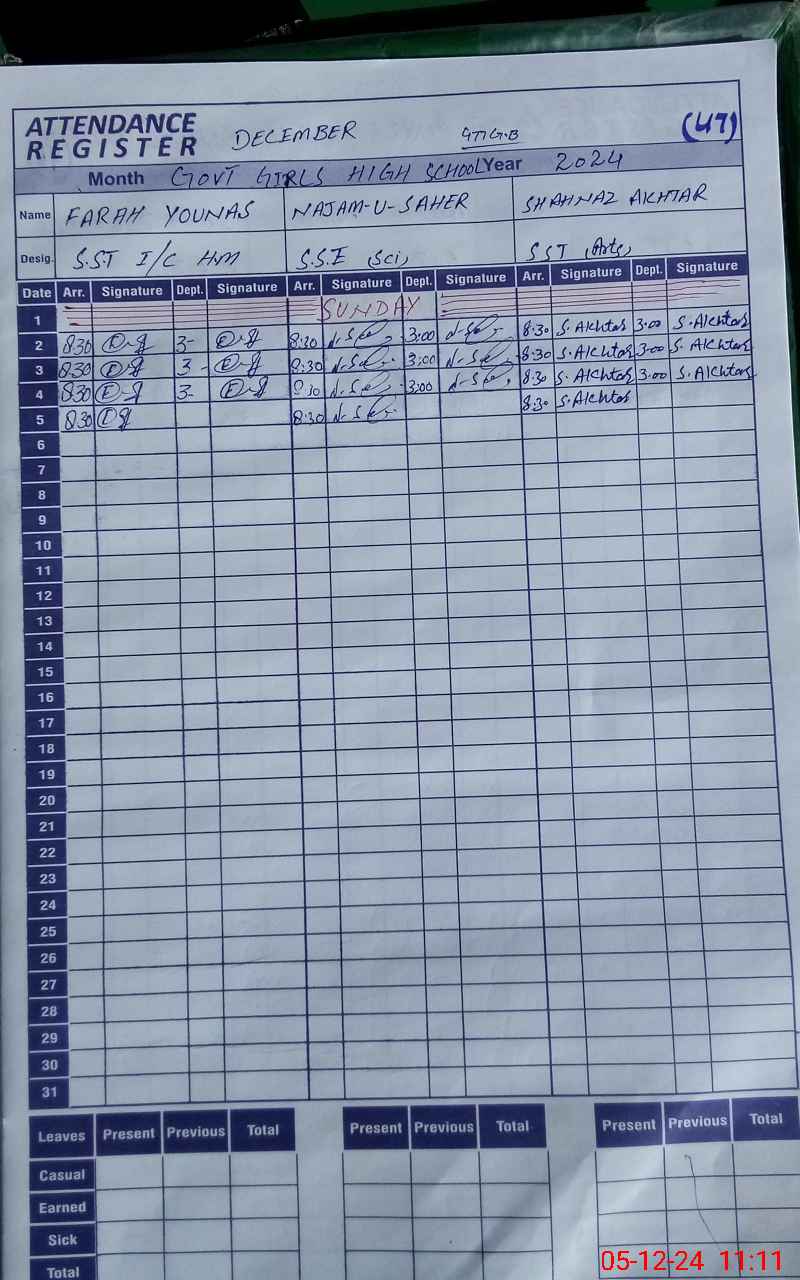 ATTENDANCE
REGISTER DECEMBER (47)
Month GOVT GIRLS HIGH SCHOOL Year 2024
Name FARAH YOUNAS NAJAM-U-SAHER SHAHNAZ AKHTAR
Desig. S.ST I/C HM S.S.E (Sci) SST (Arts)
Date Arr. Signature Dept. Signature Arr. Signature Dept. Signature Arr. Signature Dept. Signature
1 SUNDAY
2 8:30 3- 8:30 3:00 8:30 S.Akhtar 3:00 S.Akhtar
3 8:30 3- 8:30 3:00 8:30 S.Akhtar 3:00 S.Akhtar
4 8:30 3- 8:30 3:00 8:30 S.Akhtar 3:00 S.Akhtar
5 8:30 8:30 8:30 S.Akhtar
6
7
8
9
10
11
12
13
14
15
16
17
18
19
20
21
22
23
24
25
26
27
28
29
30
31
Leaves Present Previous Total Present Previous Total Present Previous Total
Casual
Earned
Sick
Total
05-12-24 11:11